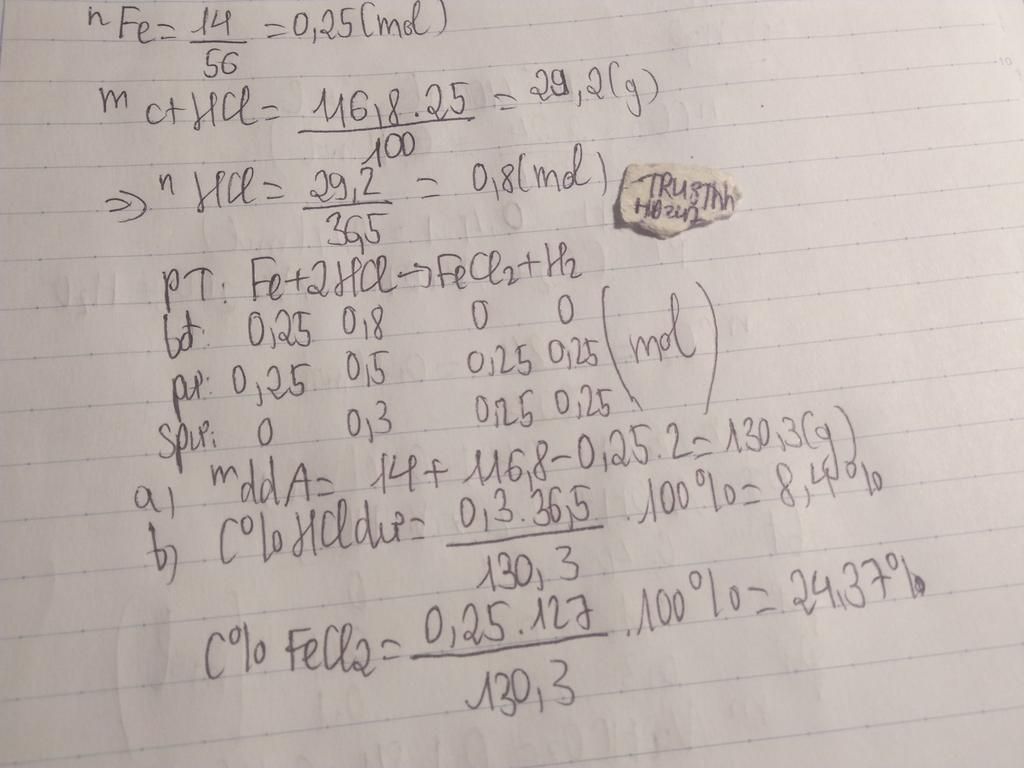 nFe = 14/56 = 0,25 (mol)
m ct HCl = 116,8.25/100 = 29,2 (g)
=> nHCl = 29,2/36,5 = 0,8 (mol)
PT: Fe + 2HCl → FeCl2 + H2
bđ: 0,25 0,8 0 0
pư: 0,25 0,5 0,25 0,25 (mol)
spư: 0 0,3 0,25 0,25
a, mddA = 14 + 116,8 - 0,25.2 = 130,3 (g)
b, C% HCl dư = 0,3.36,5/130,3 .100% = 8,4%
C% FeCl2 = 0,25.127/130,3 .100% = 24,37%